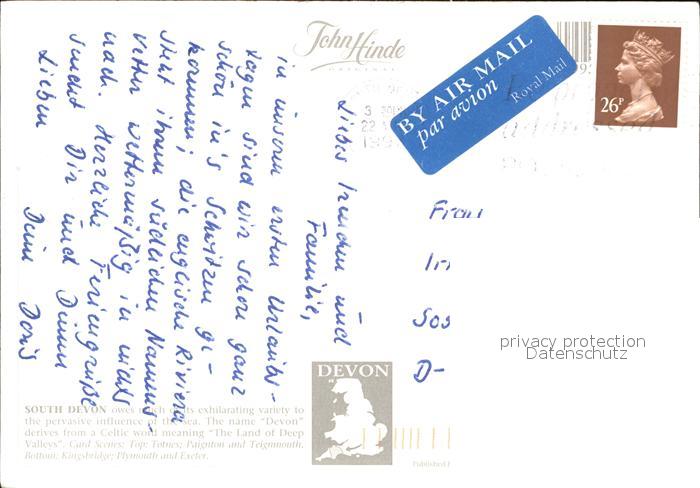 John Hinde
ORIGINAL
BY AIR MAIL
par avion
Royal Mail
26P
Liebes Irmchen und
Familie,
in unseren ersten Urlaubs-
tagen sind wir schon ganz
schön in's Schwitzen ge-
kommen; die englische Riviera
steht ihrem südlichen Namens-
vetter wettermäßig in nichts
nach. Herzliche Feriengrüße
sendet Dir und Deinen
Lieben Deine Doris
Frau
Sos
D-
privacy protection
Datenschutz
DEVON
SOUTH DEVON owes much of its exhilarating variety to
the pervasive influence of the sea. The name "Devon"
derives from a Celtic word meaning "The Land of Deep
Valleys". Card Scenes: Top: Totnes; Paignton and Teignmouth.
Bottom: Kingsbridge; Plymouth and Exeter.
Published